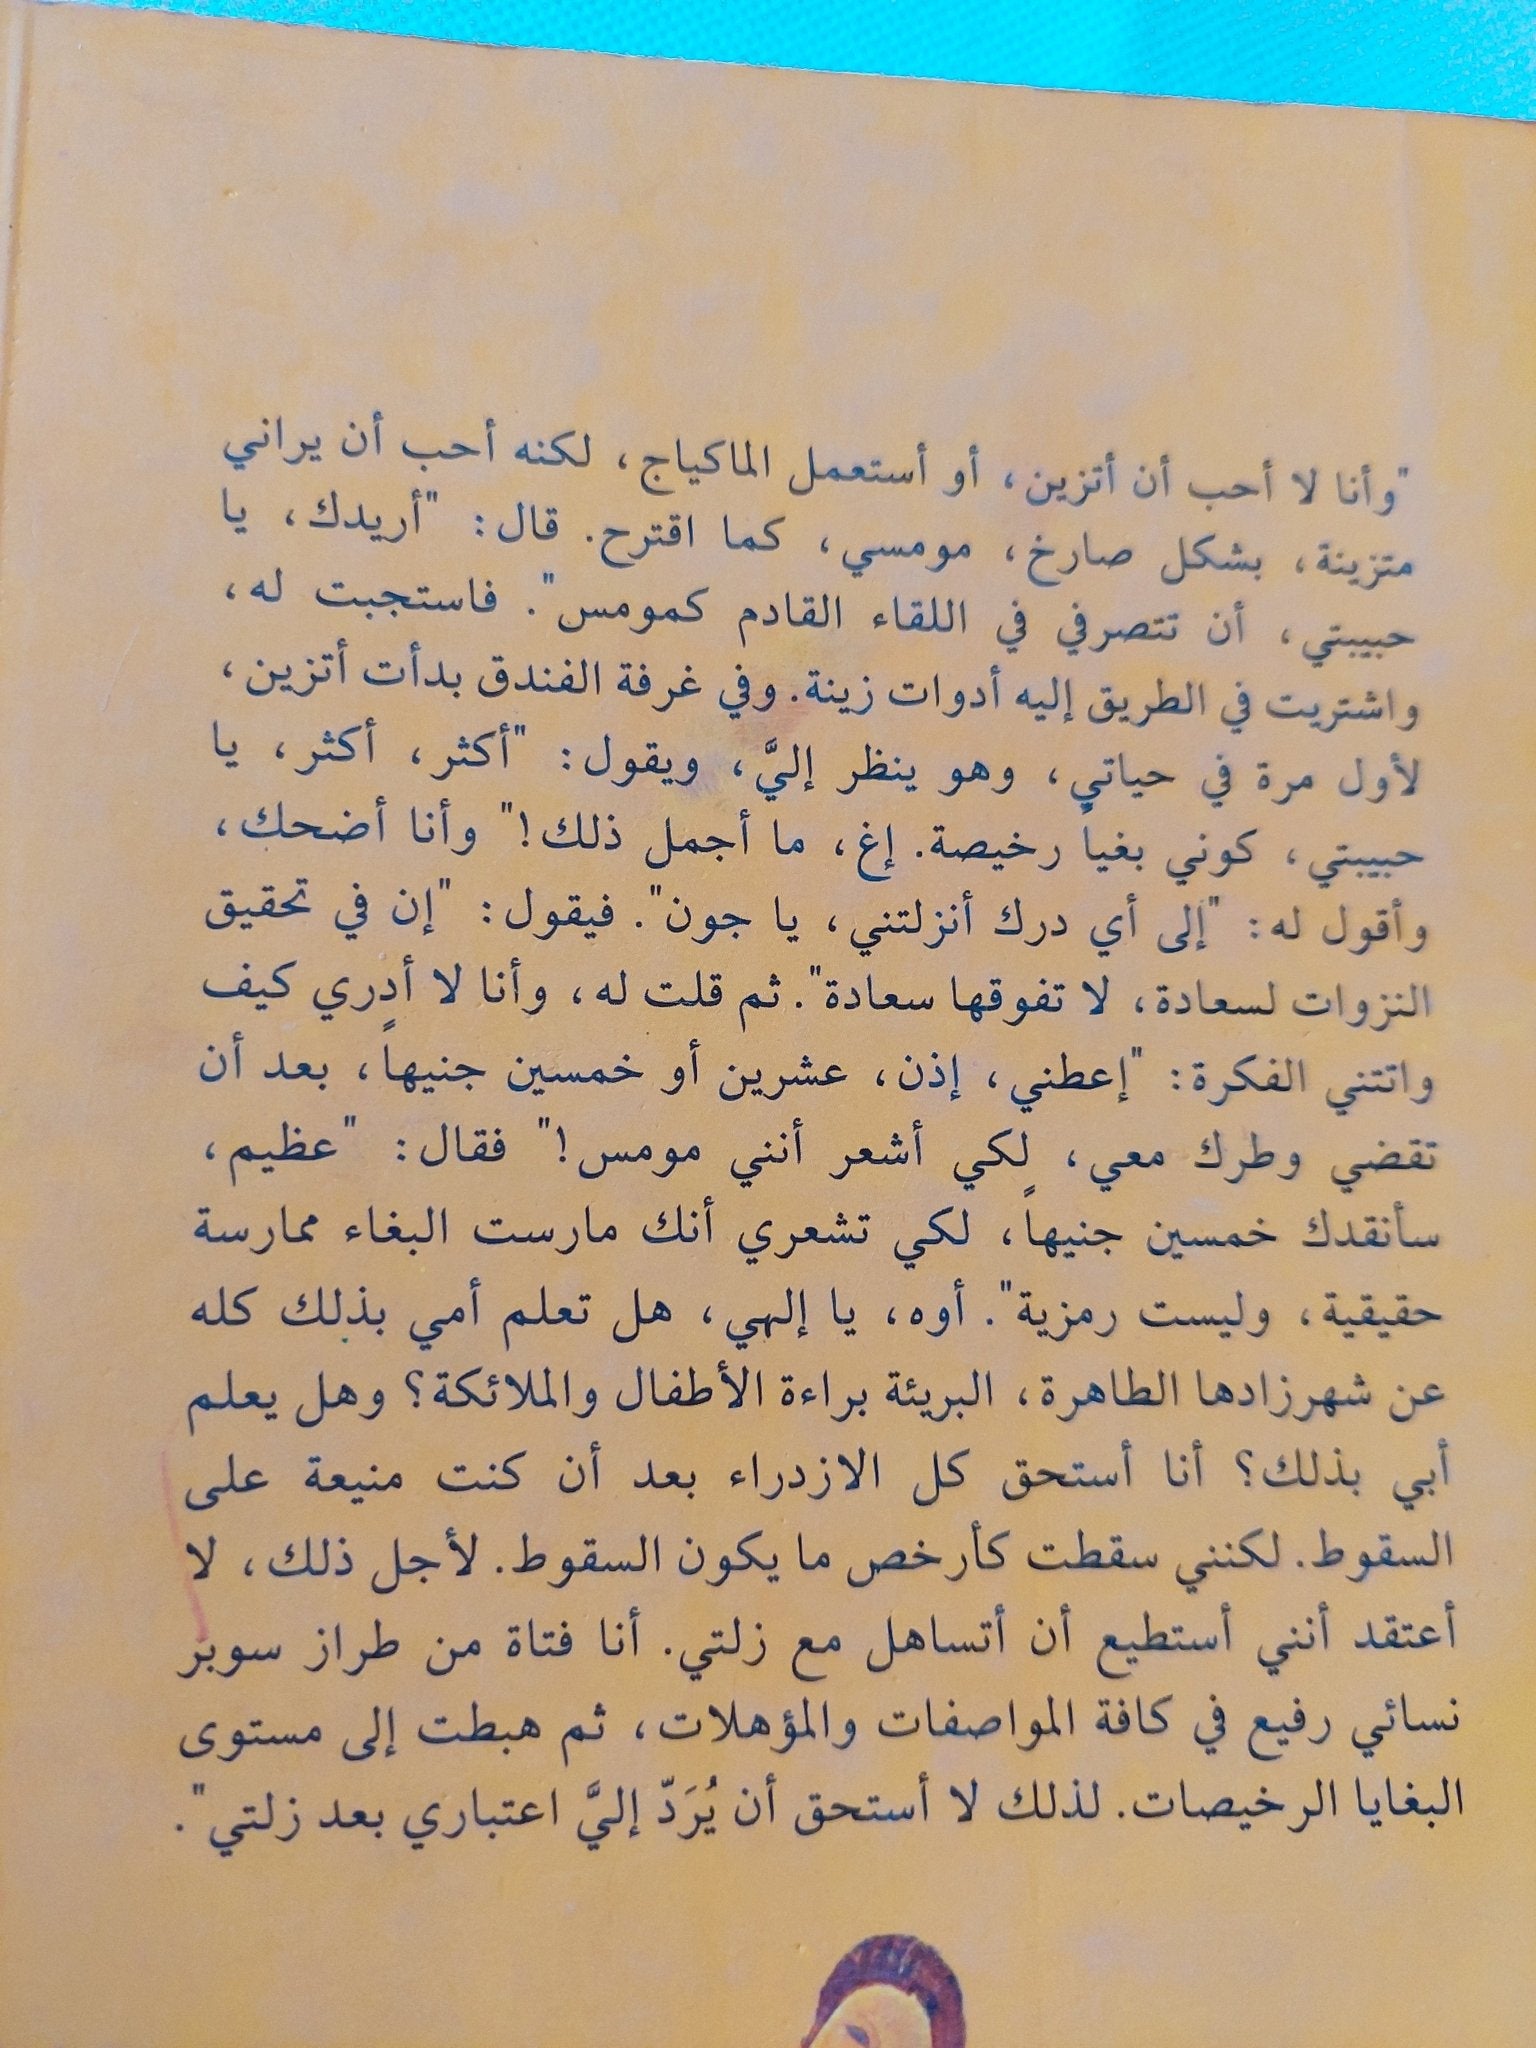 "وأنا لا أحب أن أتزين، أو أستعمل الماكياج، لكنه أحب أن يراني
متزينة، بشكل صارخ، مومسي، كما اقترح. قال: "أريدك، يا
حبيبتي، أن تتصرفي في اللقاء القادم كمومس". فاستجبت له،
واشتريت في الطريق إليه أدوات زينة. وفي غرفة الفندق بدأت أتزين،
لأول مرة في حياتي، وهو ينظر إليَّ، ويقول: "أكثر، أكثر، يا
حبيبتي، كوني بغياً رخيصة. إغ، ما أجمل ذلك!" وأنا أضحك،
وأقول له: "إلى أي درك أنزلتني، يا جون". فيقول: "إن في تحقيق
النزوات لسعادة، لا تفوقها سعادة". ثم قلت له، وأنا لا أدري كيف
واتتني الفكرة: "إعطني، إذن، عشرين أو خمسين جنيهاً، بعد أن
تقضي وطرك معي، لكي أشعر أنني مومس!" فقال: "عظيم،
سأنقدك خمسين جنيهاً، لكي تشعري أنك مارست البغاء ممارسة
حقيقية، وليست رمزية". أوه، يا إلهي، هل تعلم أمي بذلك كله
عن شهرزادها الطاهرة، البريئة براءة الأطفال والملائكة؟ وهل يعلم
أبي بذلك؟ أنا أستحق كل الازدراء بعد أن كنت منيعة على
السقوط. لكنني سقطت كأرخص ما يكون السقوط. لأجل ذلك، لا
أعتقد أنني أستطيع أن أتساهل مع زلتي. أنا فتاة من طراز سوبر
نسائي رفيع في كافة المواصفات والمؤهلات، ثم هبطت إلى مستوى
البغايا الرخيصات. لذلك لا أستحق أن يُرَدّ إليَّ اعتباري بعد زلتي".